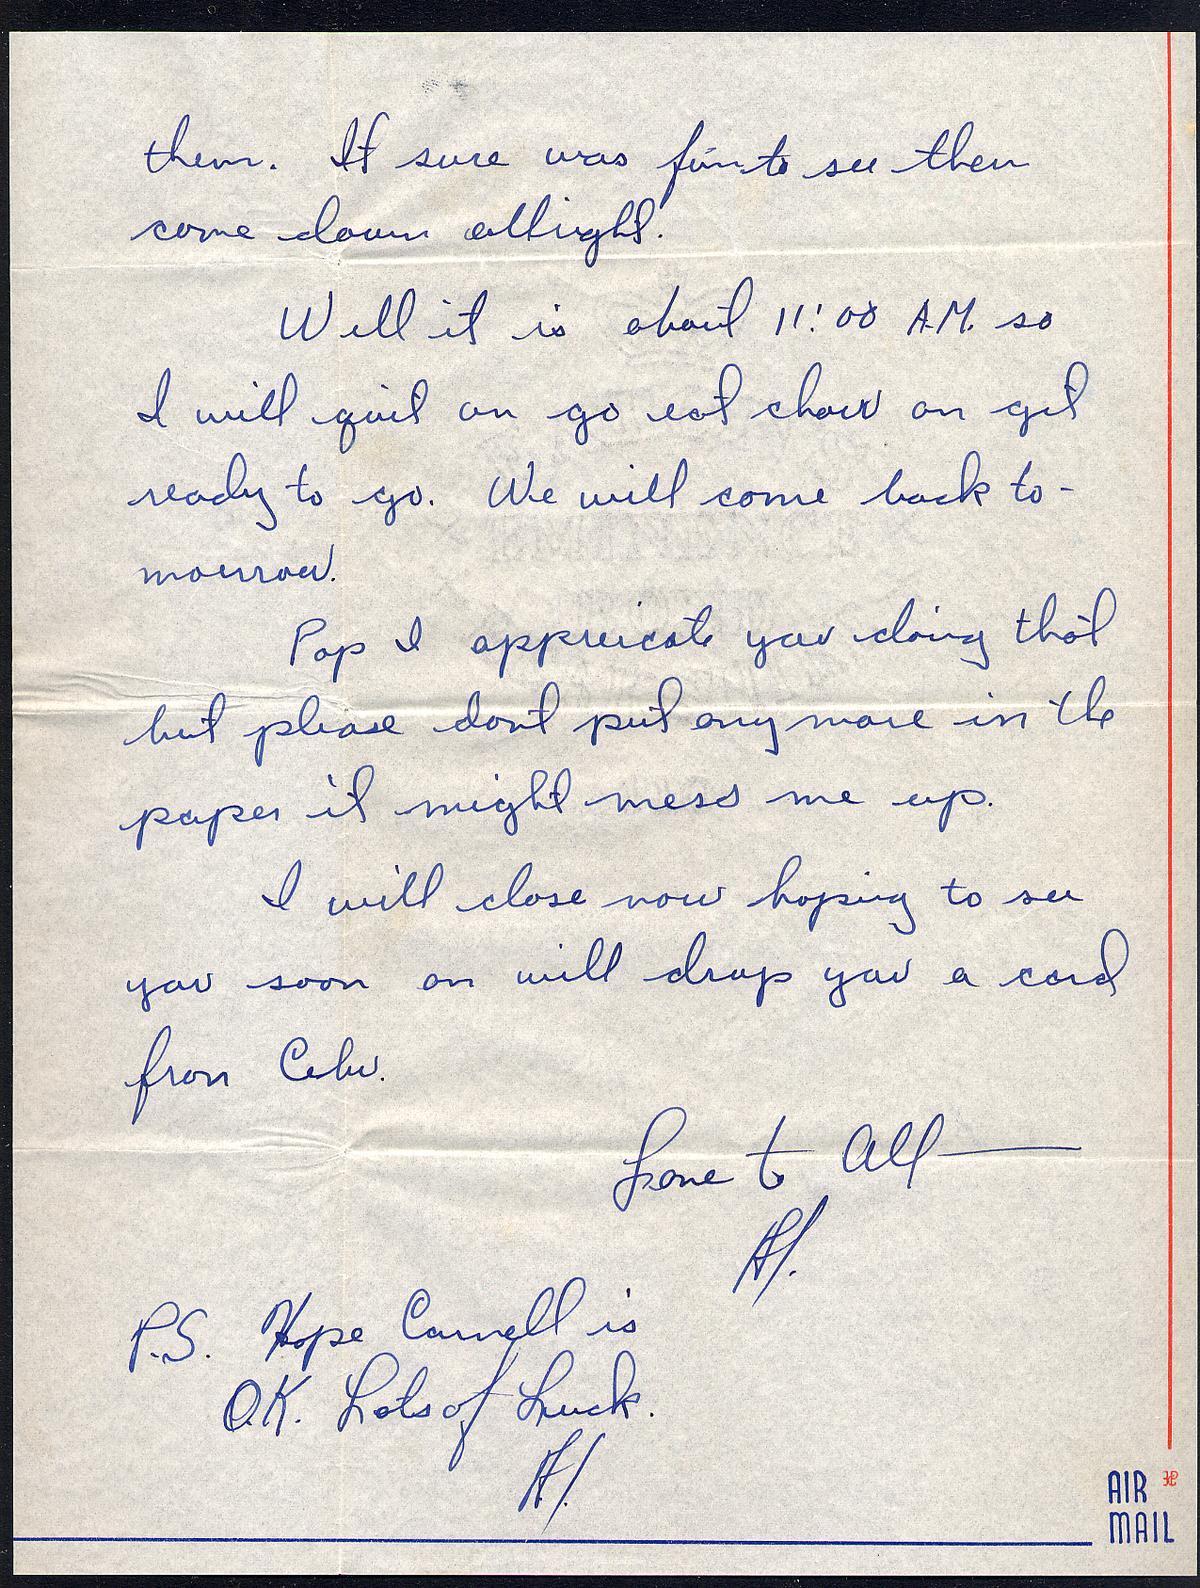 them. It sure was fun to see them
come down allright.
Well it is about 11:00 A.M. so
I will quit an go eat chow an get
ready to go. We will come back to-
mourrow.
Pop I appricate you doing that
but please dont put any more in the
paper it might mess me up.
I will close now hoping to see
you soon an will drop you a card
from Cebu.
Love to All
Al.
P.S. Hope Carnell is
O.K. Lots of Luck.
Al.
AIR
MAIL